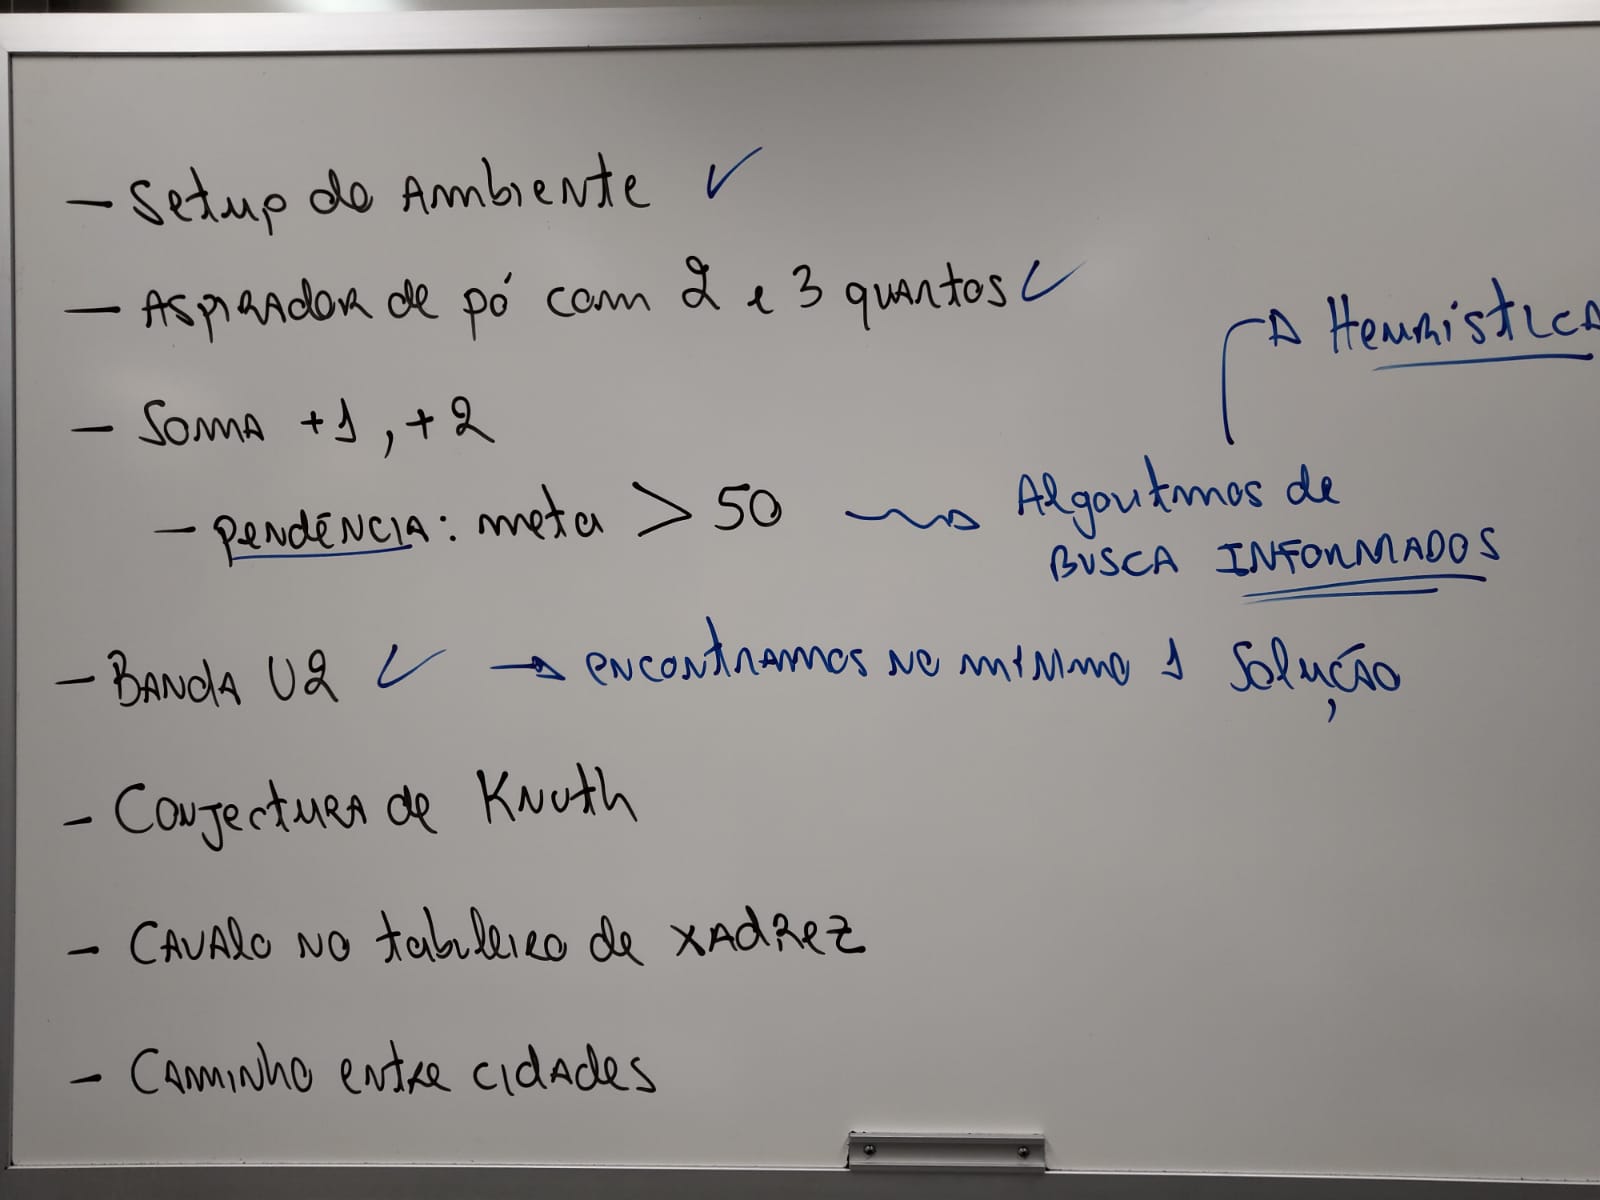 - Setup do Ambiente ✓
- Aspirador de pó com 2 e 3 quartos ✓
- Soma +1, +2
- pendência: meta > 50 → Algoritmos de
BUSCA INFORMADOS
→ Heurística
- Banda U2 ✓ → encontramos no mínimo 1 solução
- Conjectura de Knuth
- Cavalo no tabuleiro de xadrez
- Caminho entre cidades